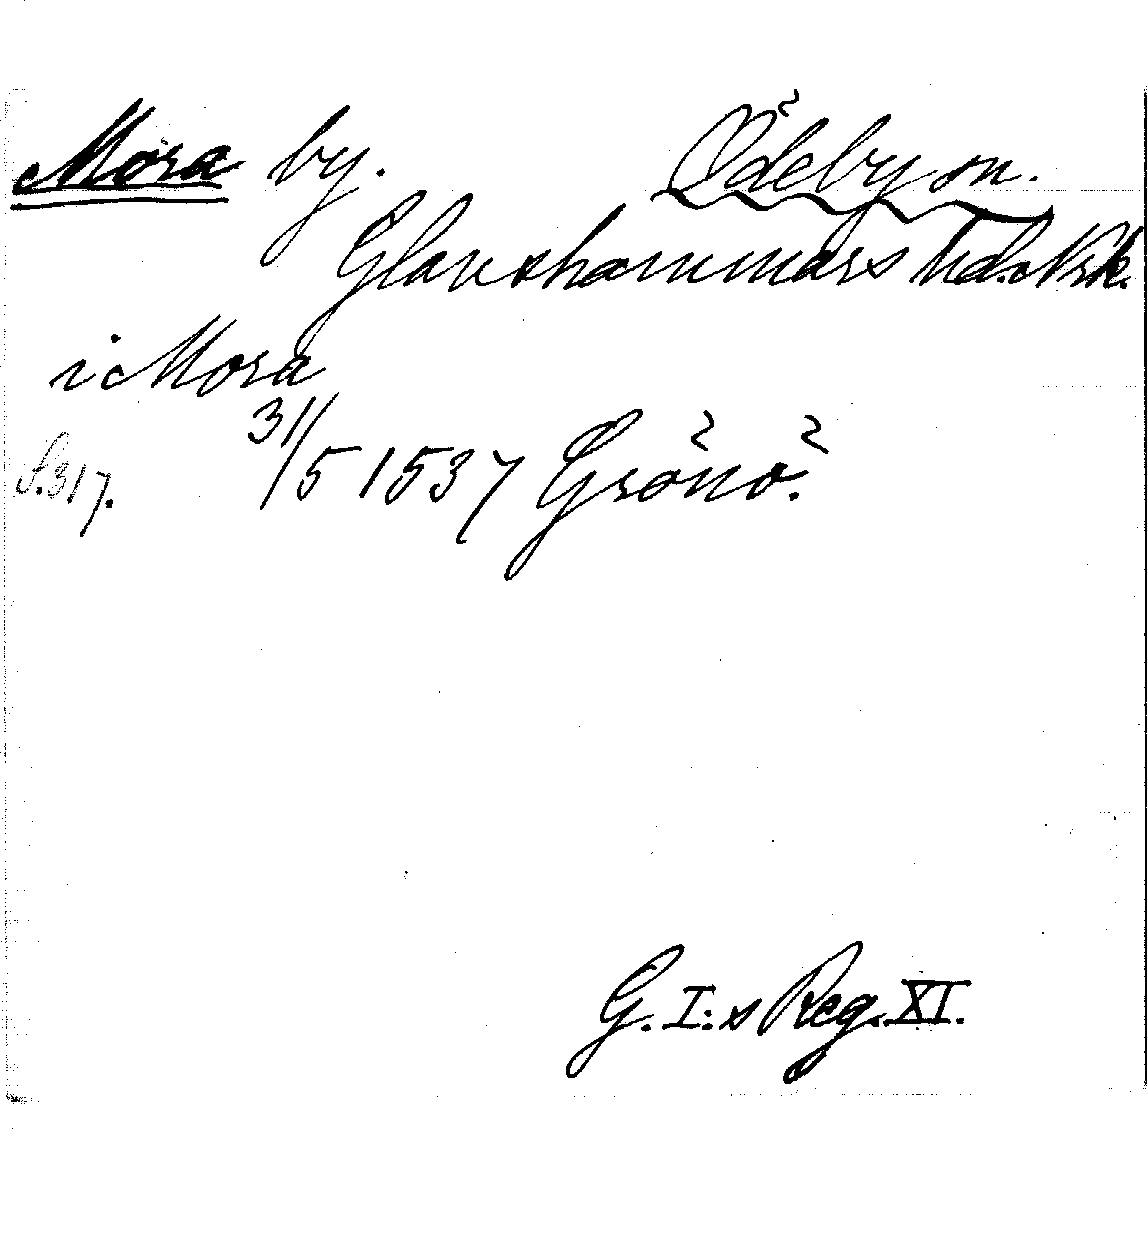 Mora by. Ödeby sn.
Glanshammars hd. Nrk.
i Mora
S. 317. 31/5 1537 Grönö.
G. I:s Reg. XI.